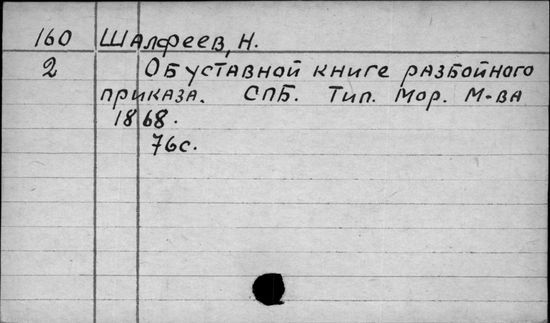 160 Шалфеев, Н.
2 Об уставной книге разбойного
приказа. СПБ. Тип. Мор. М-ва
1868.
76с.